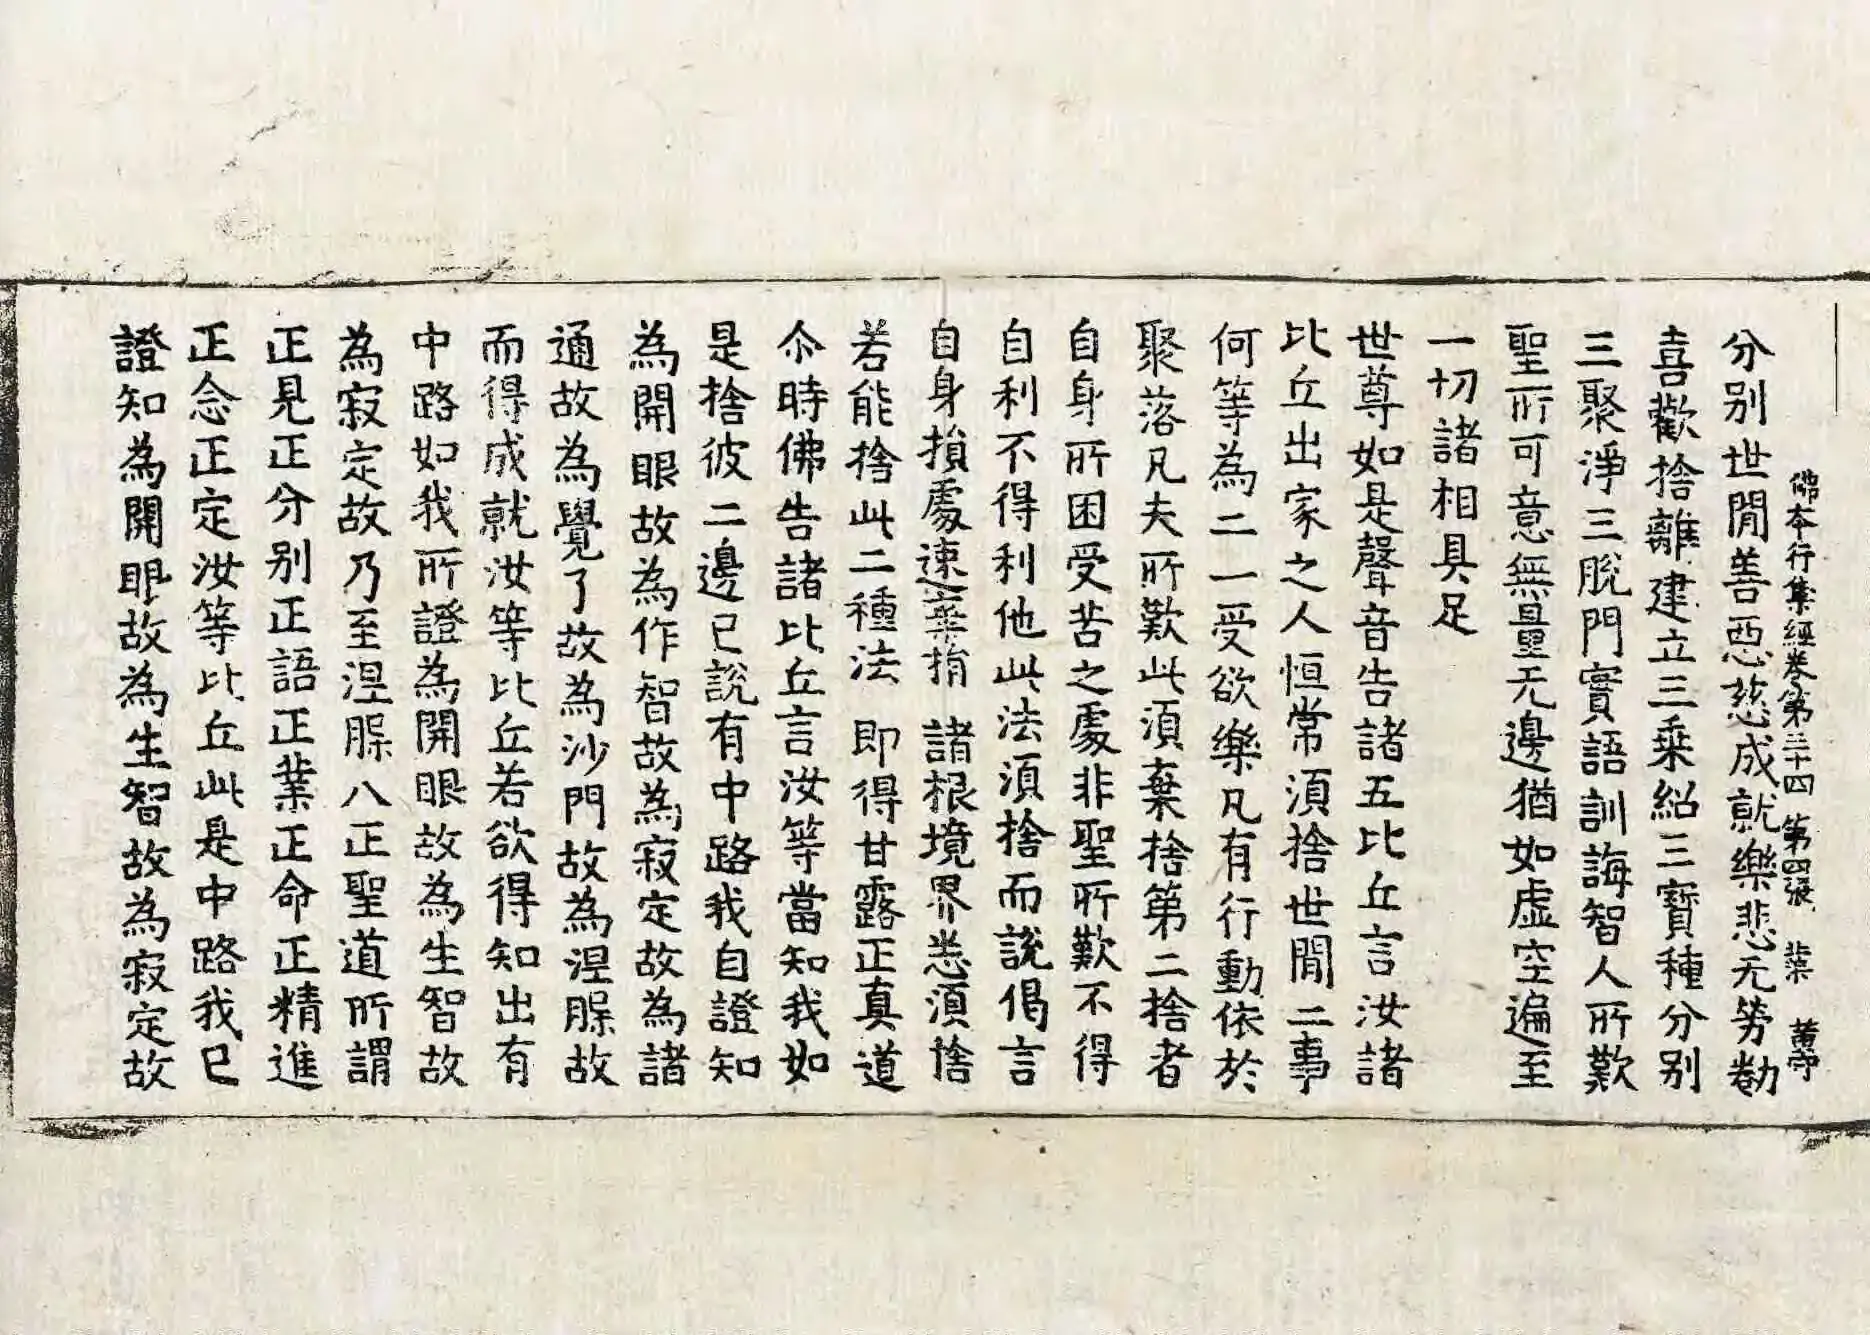 佛本行集經卷第三十四 第四張 業
分别世閒善惡慈成就樂悲无勞勌
喜歡捨離建立三乘紹三寶種分别
三聚淨三脫門實語訓誨智人所歎
聖所可意無量无邊猶如虛空遍至
一切諸相具足
世尊如是聲音告諸五比丘言汝諸
比丘出家之人恒常湏捨世閒二事
何等為二一受欲樂凡有行動依於
聚落凡夫所歎此湏棄捨第二捨者
自身所困受苦之處非聖所歎不得
自利不得利他此法湏捨而說偈言
自身損處速棄捐 諸根境界悉湏捨
若能捨此二種法 即得甘露正真道
尒時佛告諸比丘言汝等當知我如
是捨彼二邊已說有中路我自證知
為開眼故為作智故為寂定故為諸
通故為覺了故為沙門故為涅槃故
而得成就汝等比丘若欲得知出有
中路如我所證為開眼故為生智故
為寂定故乃至涅槃八正聖道所謂
正見正分别正語正業正命正精進
正念正定汝等比丘此是中路我已
證知為開眼故為生智故為寂定故